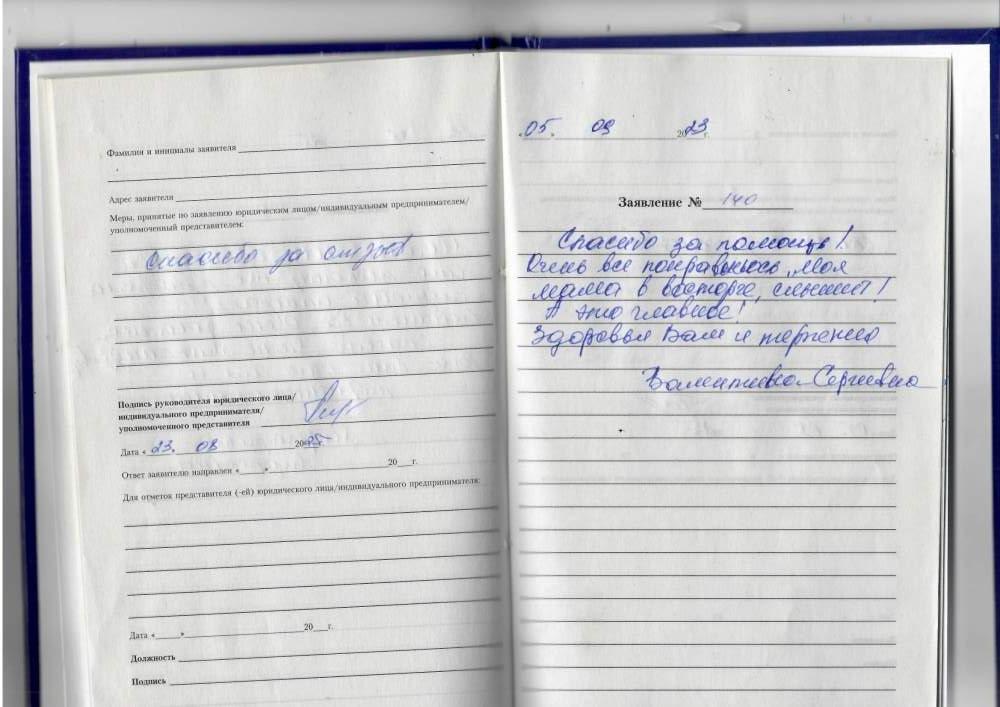 Фамилия и инициалы заявителя
Адрес заявителя
Меры, принятые по заявлению юридическим лицом/индивидуальным предпринимателем/
уполномоченный представителем:
Спасибо за отзыв
Подпись руководителя юридического лица/
индивидуального предпринимателя/
уполномоченного представителя
Дата « 23. 08 20 г.
Ответ заявителю направлен « » 20 г.
Для отметок представителя (-ей) юридического лица/индивидуального предпринимателя:
Дата « » 20 г.
Должность
Подпись
05. 09 2023 г.
Заявление № 140
Спасибо за помощь!
Очень все понравилось, моя
мама в восторге, слышит!
А это главное!
Здоровья Вам и терпения
Валентина Сергеевна